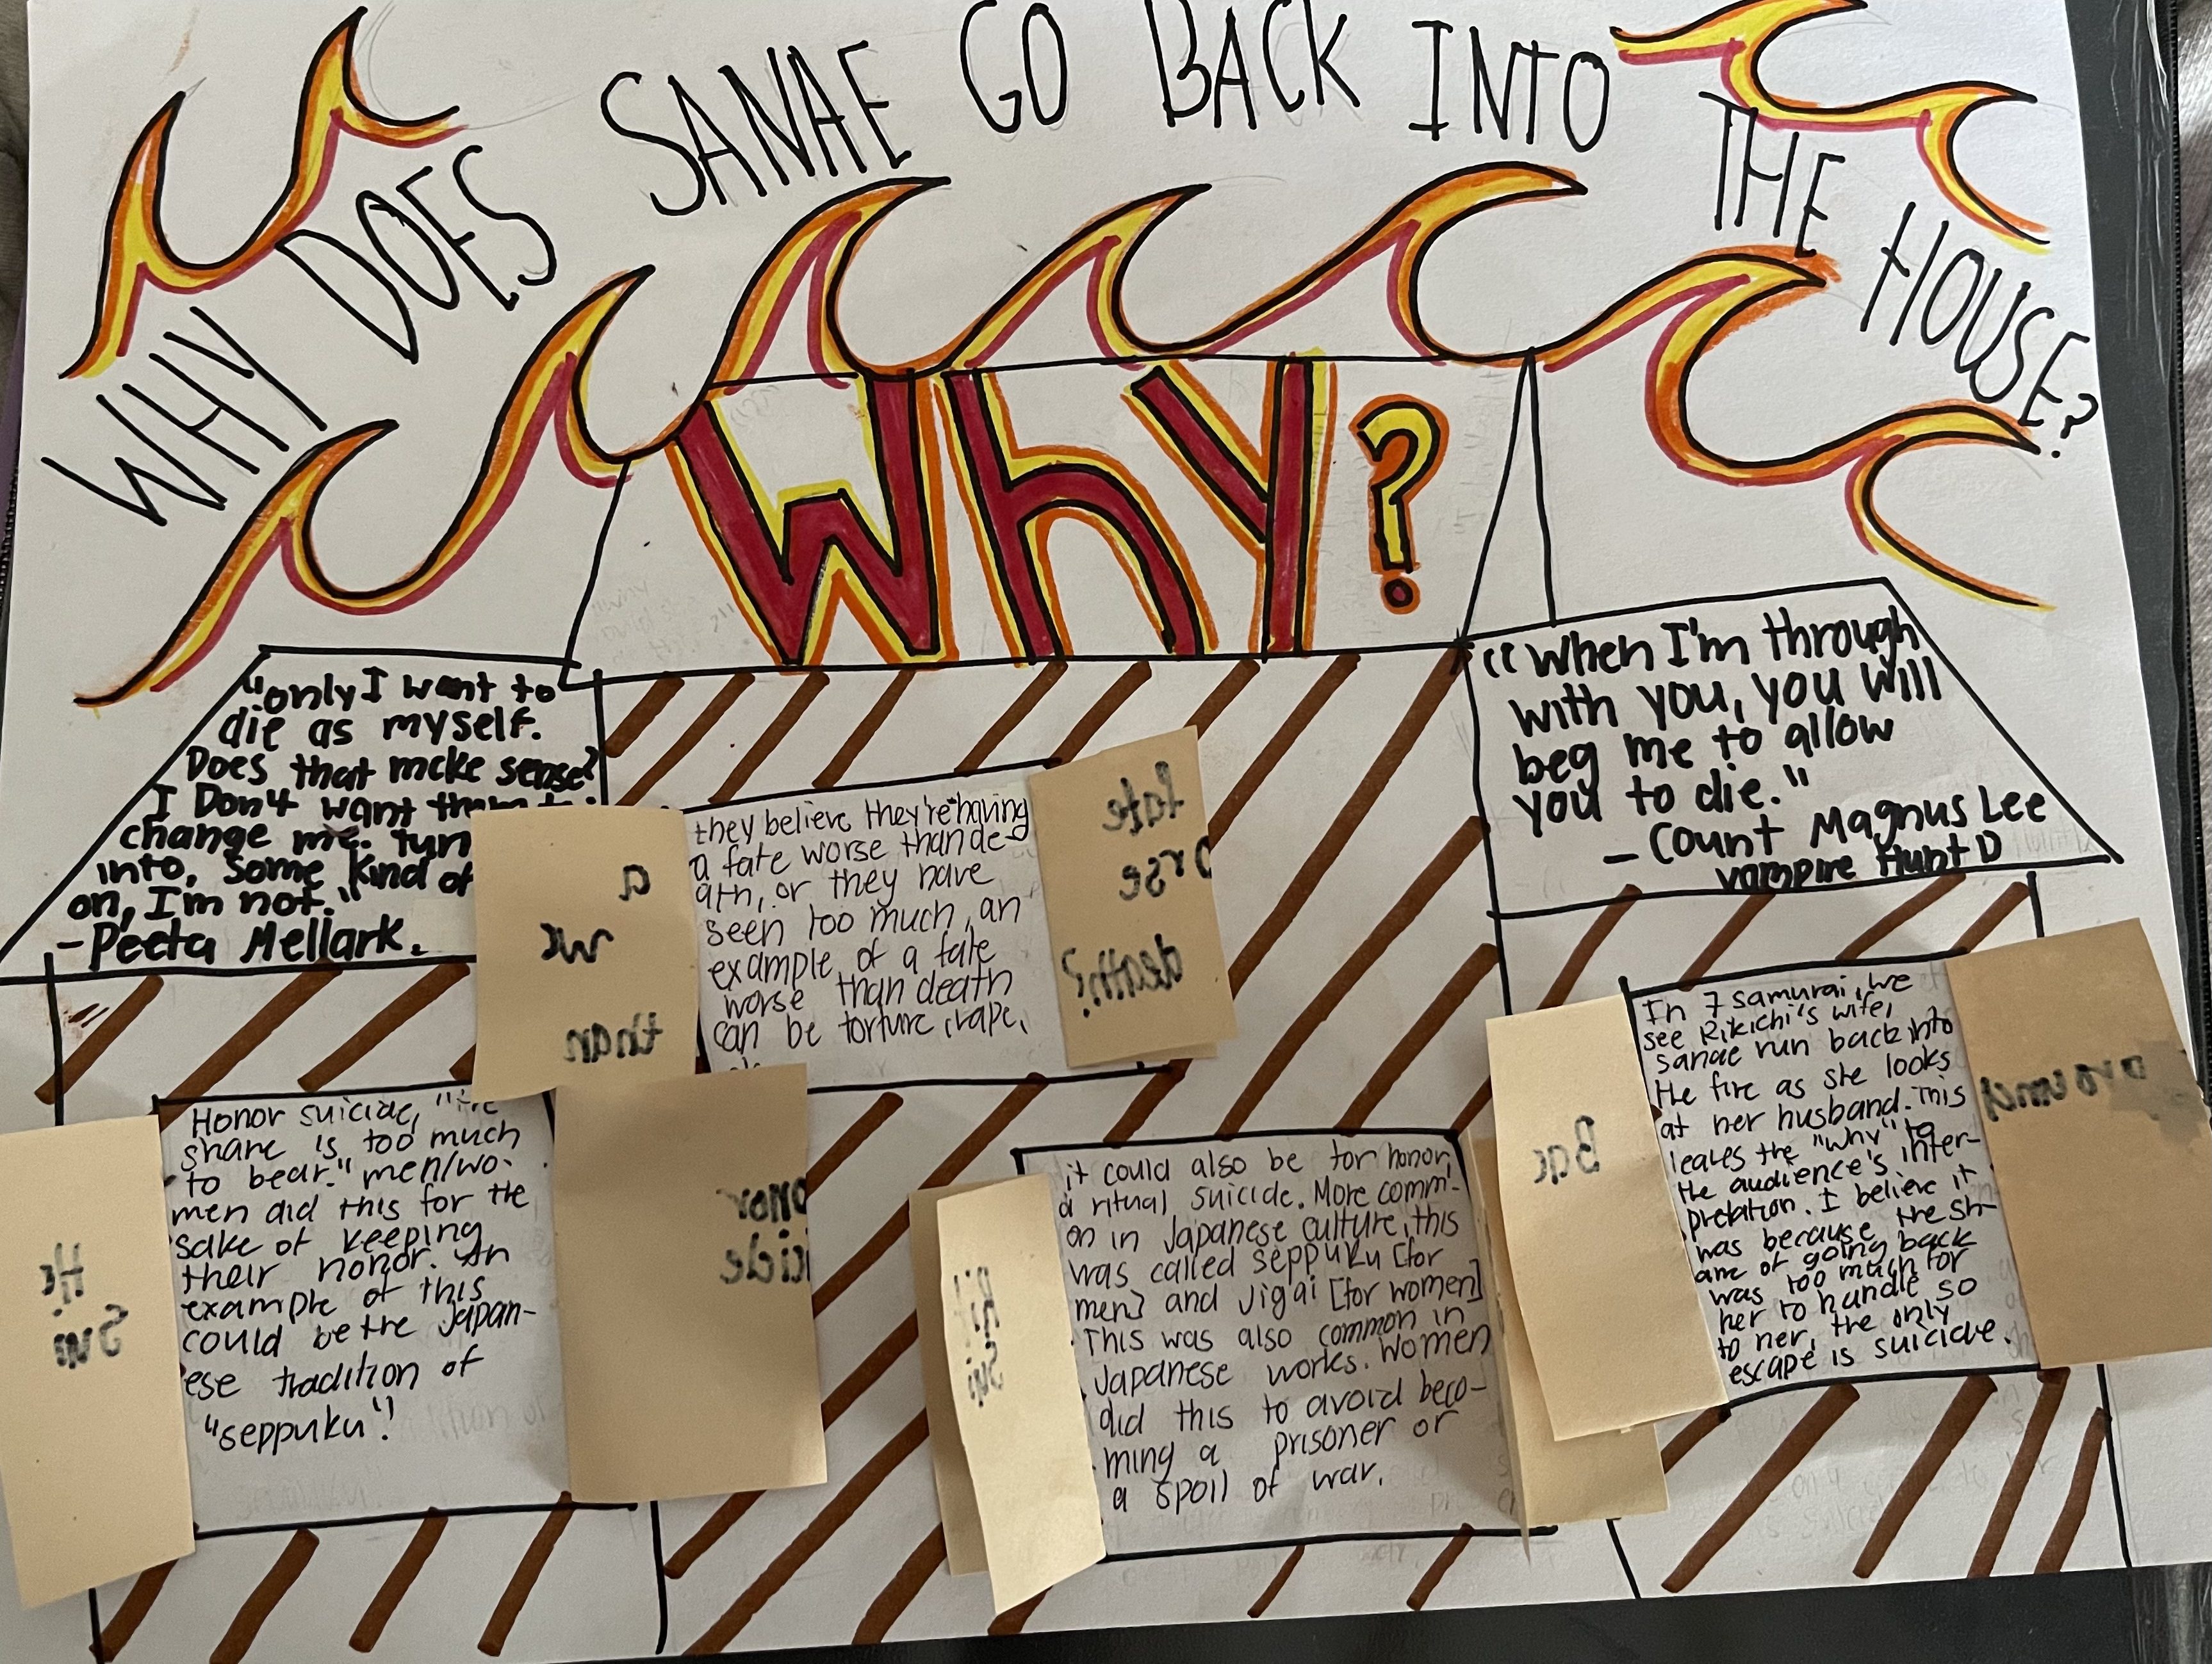 WHY DOES SANAE GO BACK INTO THE HOUSE?
WHY?
"only I want to
die as myself.
Does that make sense?
I Don't want
change me. turn
into, some kind of
on, I'm not."
-Peeta Mellark.
"When I'm through
with you, you will
beg me to allow
you to die."
- Count Magnus Lee
vampire Hunt D
a
than
they believe they're having
a fate worse than de-
ath, or they have
seen too much, an
example of a fate
worse than death
can be torture, rape,
fate
orse
death?
He
Honor suicide, "the
shame is too much
to bear." men/wo-
men did this for the
sake of keeping
their honor. An
example of this
could be the Japan-
ese tradition of
"seppuku"!
onor
icide
it could also be for honor,
a ritual suicide. More comm-
on in Japanese culture, this
was called seppuku [for
men] and Jigai [for women]
This was also common in
Japanese works. Women
did this to avoid beco-
ming a prisoner or
a spoil of war.
Bac
In 7 samurai, we
see Rikichi's wife,
sanae run back into
the fire as she looks
at her husband. This
leaves the "why" to
the audience's inter-
pretation. I believe it
was because the sh-
ame of going back
was too much for
her to handle so
to her, the only
escape is suicide.